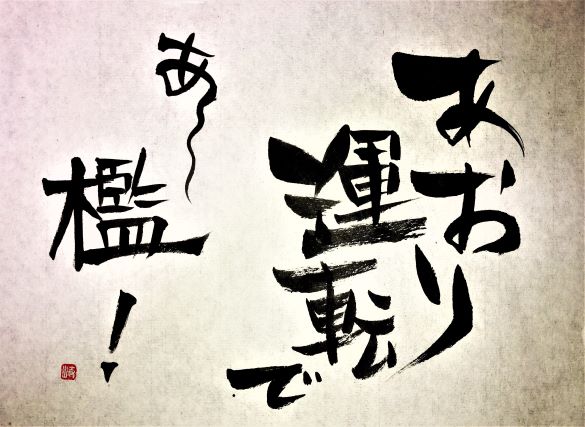 あおり
運転で
あ〜
檻!